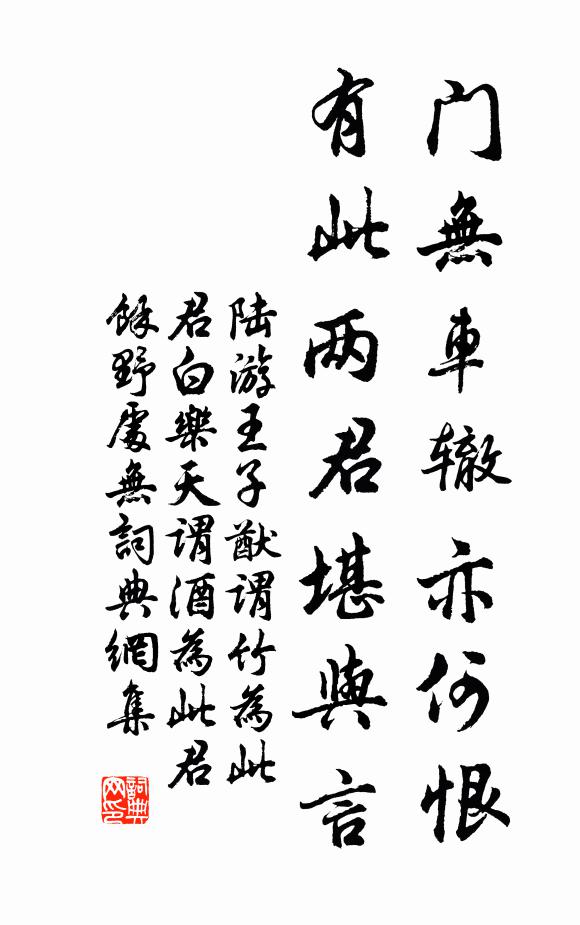 门無車辙亦何恨
有此两君堪與言
陆游王子猷谓竹為此
君白樂天谓酒為此君
餘野處無詞典網集
詞典网印